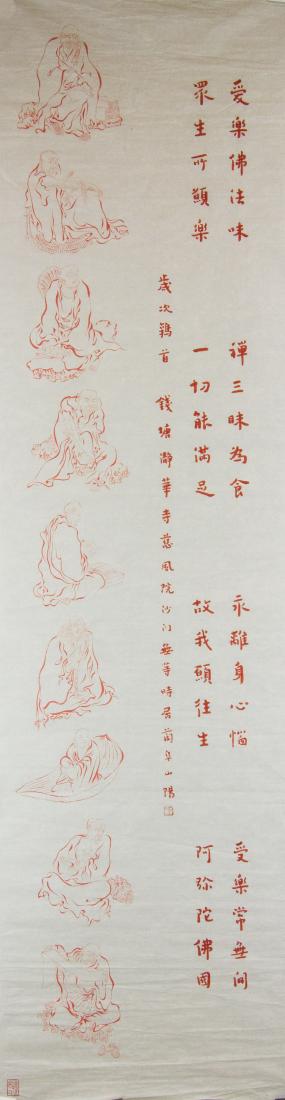 愛樂佛法味　禪三昧為食　永離身心惱　受樂常無間
眾生所願樂　一切能滿足　故我願往生　阿弥陀佛國
歲次鶉首　錢塘瀞華寺慈風院沙门無等時居蘭阜山陽